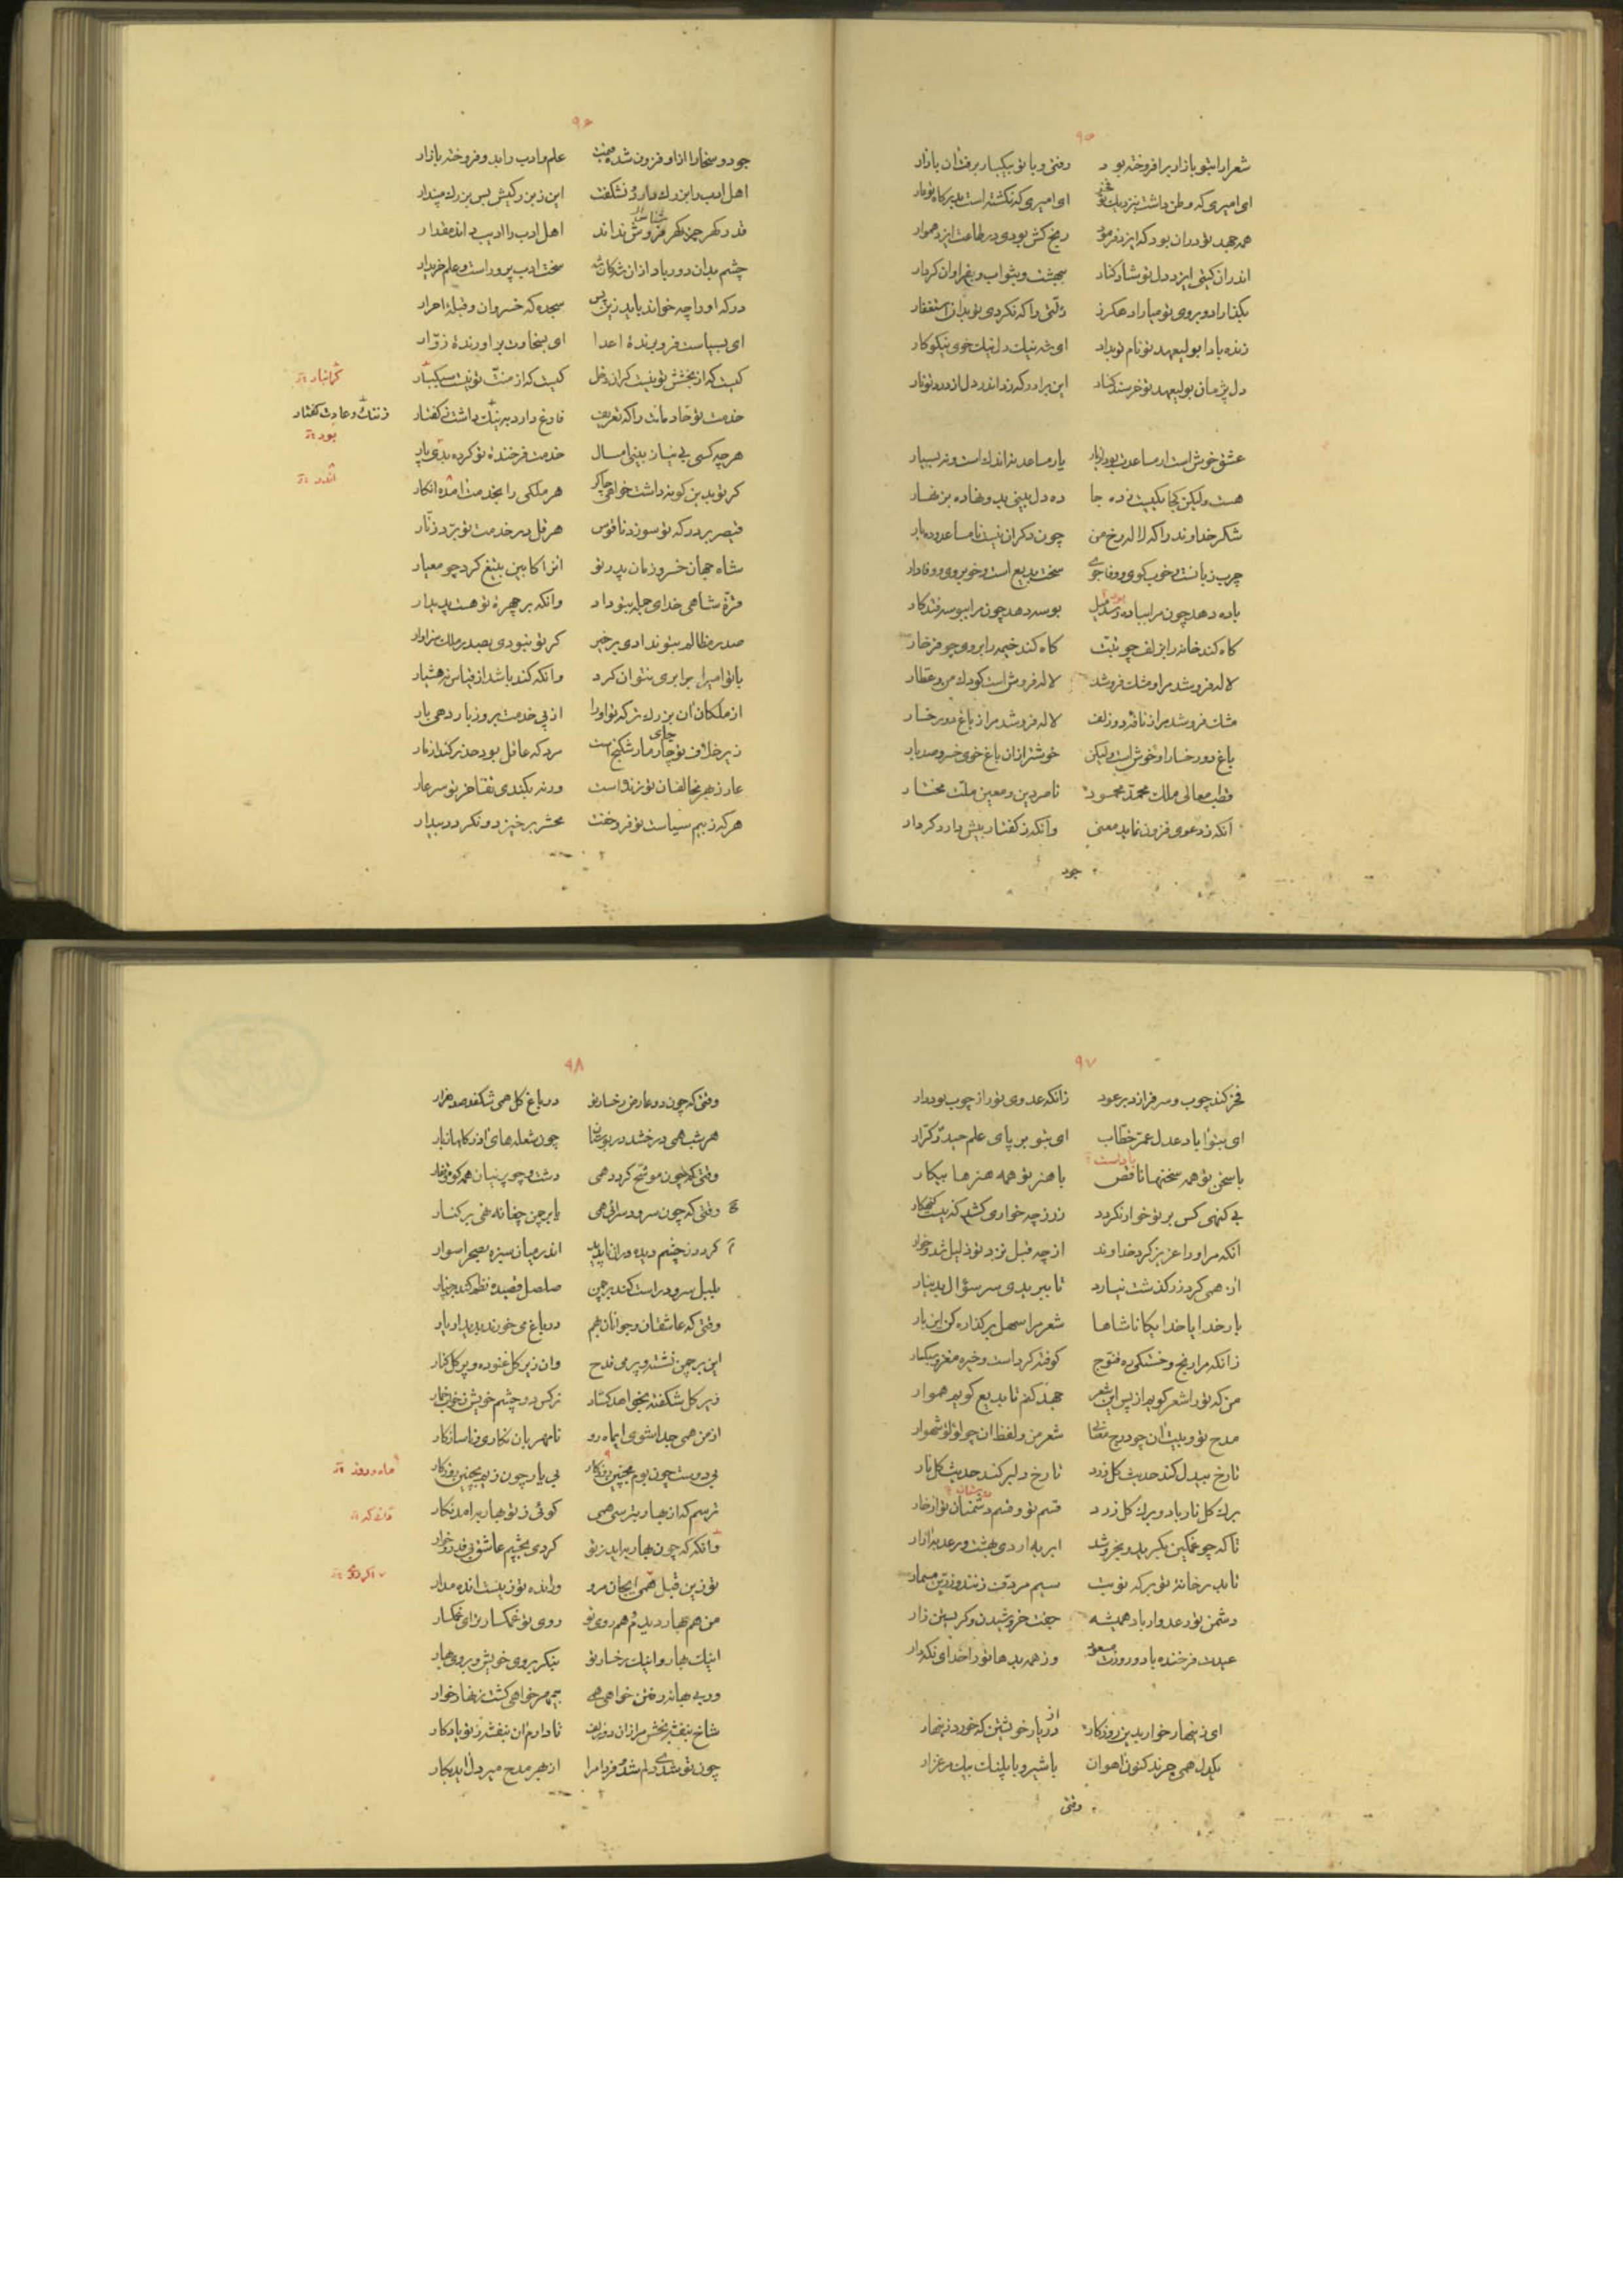 ۹۵
شعرا را بتو بازار برافروخته بود رفتی و با تو بیکبار برفت آن بازار
ای امیری که وطن داشت بنزدیک تو فخر ای امیری که نگشته است بدرگاه تو عار
همه جهد تو در آن بود که ایزد فرمود رنج کش بودی در طاعت ایزد هموار
اندر آن گیتی ایزد دل تو شاد کناد ببهشت و بثواب و بفراوان کردار
بگذاراد و بروی تو میاراد هگرز زلتی را که نکردی تو بدان استغفار
زنده بادا بولیعهد تو نام تو بداد ای شه نیک دل نیک خوی نیکو کار
دل پژمان بولیعهد تو خرسند کناد این برادر که زد اندر دل از درد تو نار
عشق خوش است ار مساعدت بود از یار یار مساعد نه اندک است و نه بسیار
هست ولیکن کجا یکیست ز ده جا ده دل بینی بد و نهاده بزنهار
شکر خداوند را که لاله رخ من چون دگران نیست نامساعد و ده یار
چرب زبانست و خوب گوی و وفا جوی سخت بدیع است و خوبروی و وفادار
باده دهد چون مرا بباده رسد میل بوسه دهد چون مرا ببوسه فتد کار
گاه کند خانه را بزلف چو تبت گاه کند خیمه را بروی چو فرخار
لاله فروشد مرا و مشک فروشد لاله فروش است کودک من و عطار
مشک فروشد مرا ز نافه دو زلف لاله فروشد مرا ز باغ دو رخسار
باغ دو رخسار او خوش است ولیکن خوشتر از آن باغ خوی خسرو صد بار
قطب معالی ملک محمد محمود ناصر دین و معین ملت مختار
آنکه ز دعوی فزون نماید معنی وآنکه ز گفتار بیش دارد کردار
جود
۹۶
جود و سخا را ازو فزون شده قیمت علم و ادب را بدو فروخته بازار
اهل ادب را بزرگ دارد و نشگفت این ز بزرگیش بس بزرگ مپندار
قدر گهر جز گهر فروش نداند شناس اهل ادب را ادیب داند مقدار
چشم بدان دور باد از آن شه کان شه سخت ادب پرور است و علم خریدار
درگه او را چه خواند باید زین پس سجده گه خسروان و قبله احرار
ای بسیاست فرو برنده اعدا ای بسخاوت بر آورنده زوار
کیست که از بخشش تو نیست گران دخل کیست که از منت تو نیست سبکبار
گرانبار
خدمت تو خادمانت را که تعریف فارغ دارد به ننگ داشت ز گفتار
ز ننگ و عادت گفتار
بود
هر چه کسی بی نیاز بینی امسال خدمت فرخنده تو کرده بدی پار
اندر
گر تو بدین گونه داشت خواهی چاکر هر ملکی را بخدمت آمده انگار
قیصر بر درگه تو سوزد ناقوس هرقل در خدمت تو برد زنار
شاه جهان خسرو زمان پدر تو آنرا کایین بتیغ کرد چو معیار
فره شاهی خدای جمله بتو داد وانگه بر چهره تو هست پدیدار
صدر مظالم بتو ندادی بر خیر گر تو نبودی بصدر ملک سزاوار
با تو امیرا برابری نتوان کرد وانکه کند باشد از قیاس نه هشیار
از ملکان آن بزرگتر که تو او را از پی خدمت بروز بار دهی بار
زیر خلاف تو جای مار شکنج است مرد که عاقل بود حذر کند از مار
عار ز بهر مخالفان تو زنده است ورنه بکندی تفاخر تو سر عار
هر که ز بیم سیاست تو فرو خفت محشر برخیزد و نگردد بیدار
۹۷
فخر کند چوب و سر فرازد بر عود زانکه عدوی تو را ز چوب بود دار
ای بتو آباد عدل عمر خطاب ای بتو بر پای علم حیدر کرار
با سخن تو همه سخنها ناقص با هنر تو همه هنرها بیکار
بی گنهی کس بر تو خوار نگردد زر ز چه خواری کشد که نیست گنهکار
آنکه مر او را عزیز کرد خداوند از چه قبل نزد تو ذلیل شد و خوار
از همی گرد زر گذشت نیارد تا ببریدی سر سؤال بدینار
بار خدایا خدایگانا شاها شعر مرا سهل بر گذاره کن این بار
زانکه مرا رنج و خستگی ره قنوج کوفته کرده است و خیره مغز و سبکبار
من که ترا شعر گویم از پس این شعر جهد کنم تا بدیع گویم هموار
مدح تو و بیت آن چو درج معانی شعر من و لفظ آن چو لؤلؤ شهوار
تا رخ بیدل کند حدیث گل زرد تا رخ دلبر کند حدیث گل نار
برگ گل نار باد و برگ گل زرد قسم تو و قسم دشمنان تو از خار
تا که چو غمگین بگرید و بخروشد ابر به اردیبهشت و رعد به آزار
تا بدر خانه تو بر گه نوبت سیم مردف زنند و زرین مسمار
دشمن تو ر عدوار باد همیشه جفت خروشیدن و گریستن زار
عیدت فرخنده باد و روزت مسعود وز همه بدها ترا خدای نگهدار
ای زینهار خوار بدین روزگار از یار خویشتن که خورد زینهار
یکدل همی چرند کنون آهوان با شیر و با پلنگ بیک مرغزار
وقتی
۹۸
وقتی که چون دو عارض و رخسار تو در باغ گل همی شکفد صد هزار
هر شب همی درخشد در بوستان چون شعله های آذر گلها ز بار
وقتی که چون موشح گردد همی دشت چو پرنیان همه کوه و غار
وقتی که چون سرود سرائی همی بر چن چغانه نهی بر کنار
گردد ز چشم دیده وران ناپدید اندر میان سبزه بصحرا سوار
بلبل سرود راست کند بر چمن صلصل قصیده نظم کند بر چنار
وقتی که عاشقان و جوانان بهم در باغ می خورند بدیدار یار
این بر چمن نشسته و پر می قدح وان زیر گل غنوده و پر گل کنار
زیر گل شکفته بخواهد گشاد نرگس دو چشم خویش ز خواب خمار
از من همی جدا شوی ای ماه رو نامهربان نگاری و ناسازگار
بی دوست چون بوم بچنین روزگار بی یار چون زیم بچنین روزگار
ماه و روز
ترسم که از بهار بترسی همی گوئی ز تو بهار بر آمد نگار
وآنگه که چون بهار بر آید ز تو گردی بچشم عاشق بی قدر و خوار
تو زین قبل همی ای جان مرو وانده تو زین است انده مدار
من هم بهار دیدم و هم روی تو روی تو غمگسار تر ای غمگسار
اینک بهار و اینک رخسار تو بنگر بروی خویش و بروی بهار
ور بی بهانه رفتن خواهی همی بیهوده مر خواهی گشت زنهار خوار
شاخ بنفشه بخش مرا زان دو زلف تا دارم آن بنفشه ز تو یادگار
چون تو شدی دلم شد و فردا مرا از بهر مدح میر دل آید بکار